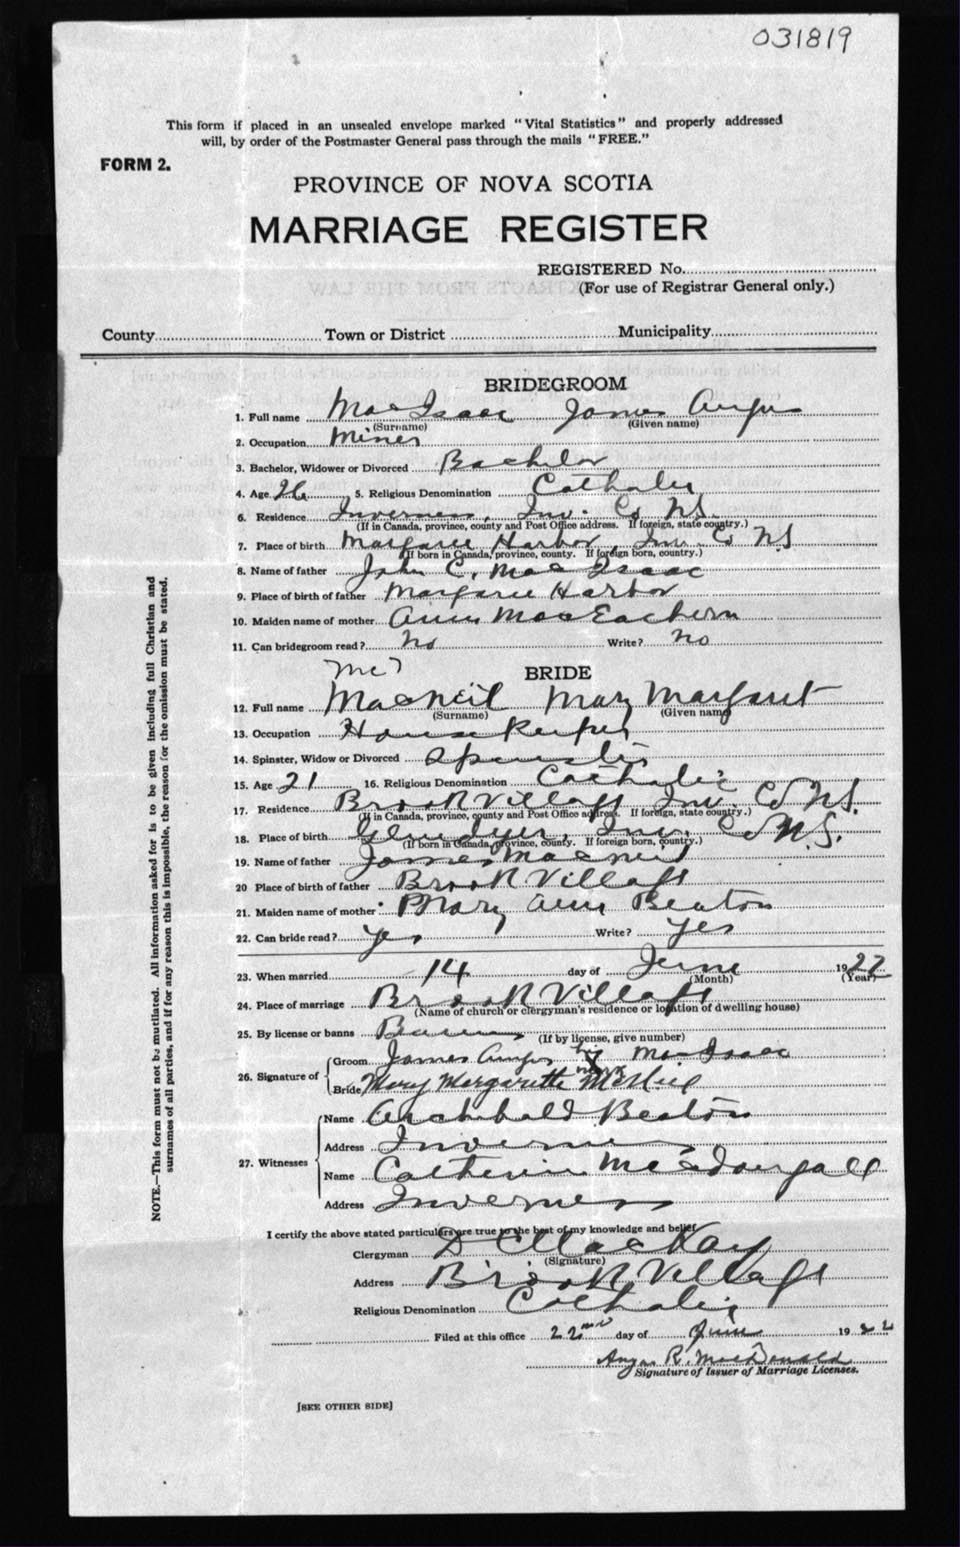 031819
This form if placed in an unsealed envelope marked "Vital Statistics" and properly addressed
will, by order of the Postmaster General pass through the mails "FREE."
FORM 2.
PROVINCE OF NOVA SCOTIA
MARRIAGE REGISTER
REGISTERED No.
(For use of Registrar General only.)
County Town or District Municipality
BRIDEGROOM
1. Full name MacIsaac James Angus
(Surname) (Given name)
2. Occupation Miner
3. Bachelor, Widower or Divorced Bachelor
4. Age 26 5. Religious Denomination Catholic
6. Residence Inverness, Inv. Co NS.
(If in Canada, province, county and Post Office address. If foreign, state country.)
7. Place of birth Margaree Harbor, Inv. Co NS
(If born in Canada, province, county. If foreign born, country.)
8. Name of father John C. MacIsaac
9. Place of birth of father Margaree Harbor
10. Maiden name of mother Ann MacEachern
11. Can bridegroom read? No Write? No
Mc?
BRIDE
12. Full name MacNeil Mary Margaret
(Surname) (Given name)
13. Occupation Housekeeper
14. Spinster, Widow or Divorced Spinster
15. Age 21 16. Religious Denomination Catholic
17. Residence Brook Village Inv. Co NS.
(If in Canada, province, county and Post Office address. If foreign, state country.)
18. Place of birth Glendyer, Inv. Co N.S.
(If born in Canada, province, county. If foreign born, country.)
19. Name of father James MacNeil
20 Place of birth of father Brook Village
21. Maiden name of mother Mary Ann Beaton
22. Can bride read? Yes Write? Yes
23. When married 14 day of June 1922
(Month) (Year)
24. Place of marriage Brook Village
(Name of church or clergyman's residence or location of dwelling house)
25. By license or banns Banns
(If by license, give number)
26. Signature of Groom James Angus his X mark MacIsaac
Bride Mary Margarette McNeil
27. Witnesses Name Archibald Beaton
Address Inverness
Name Catherine MacDougall
Address Inverness
I certify the above stated particulars are true to the best of my knowledge and belief
Clergyman D C MacKay
(Signature)
Address Brook Village
Religious Denomination Catholic
Filed at this office 22nd day of June 1922
Angus R. MacDonald
Signature of Issuer of Marriage Licenses.
[SEE OTHER SIDE]
NOTE.—This form must not be mutilated. All information asked for is to be given including full Christian and
surnames of all parties, and if for any reason this is impossible, the reason for the omission must be stated.